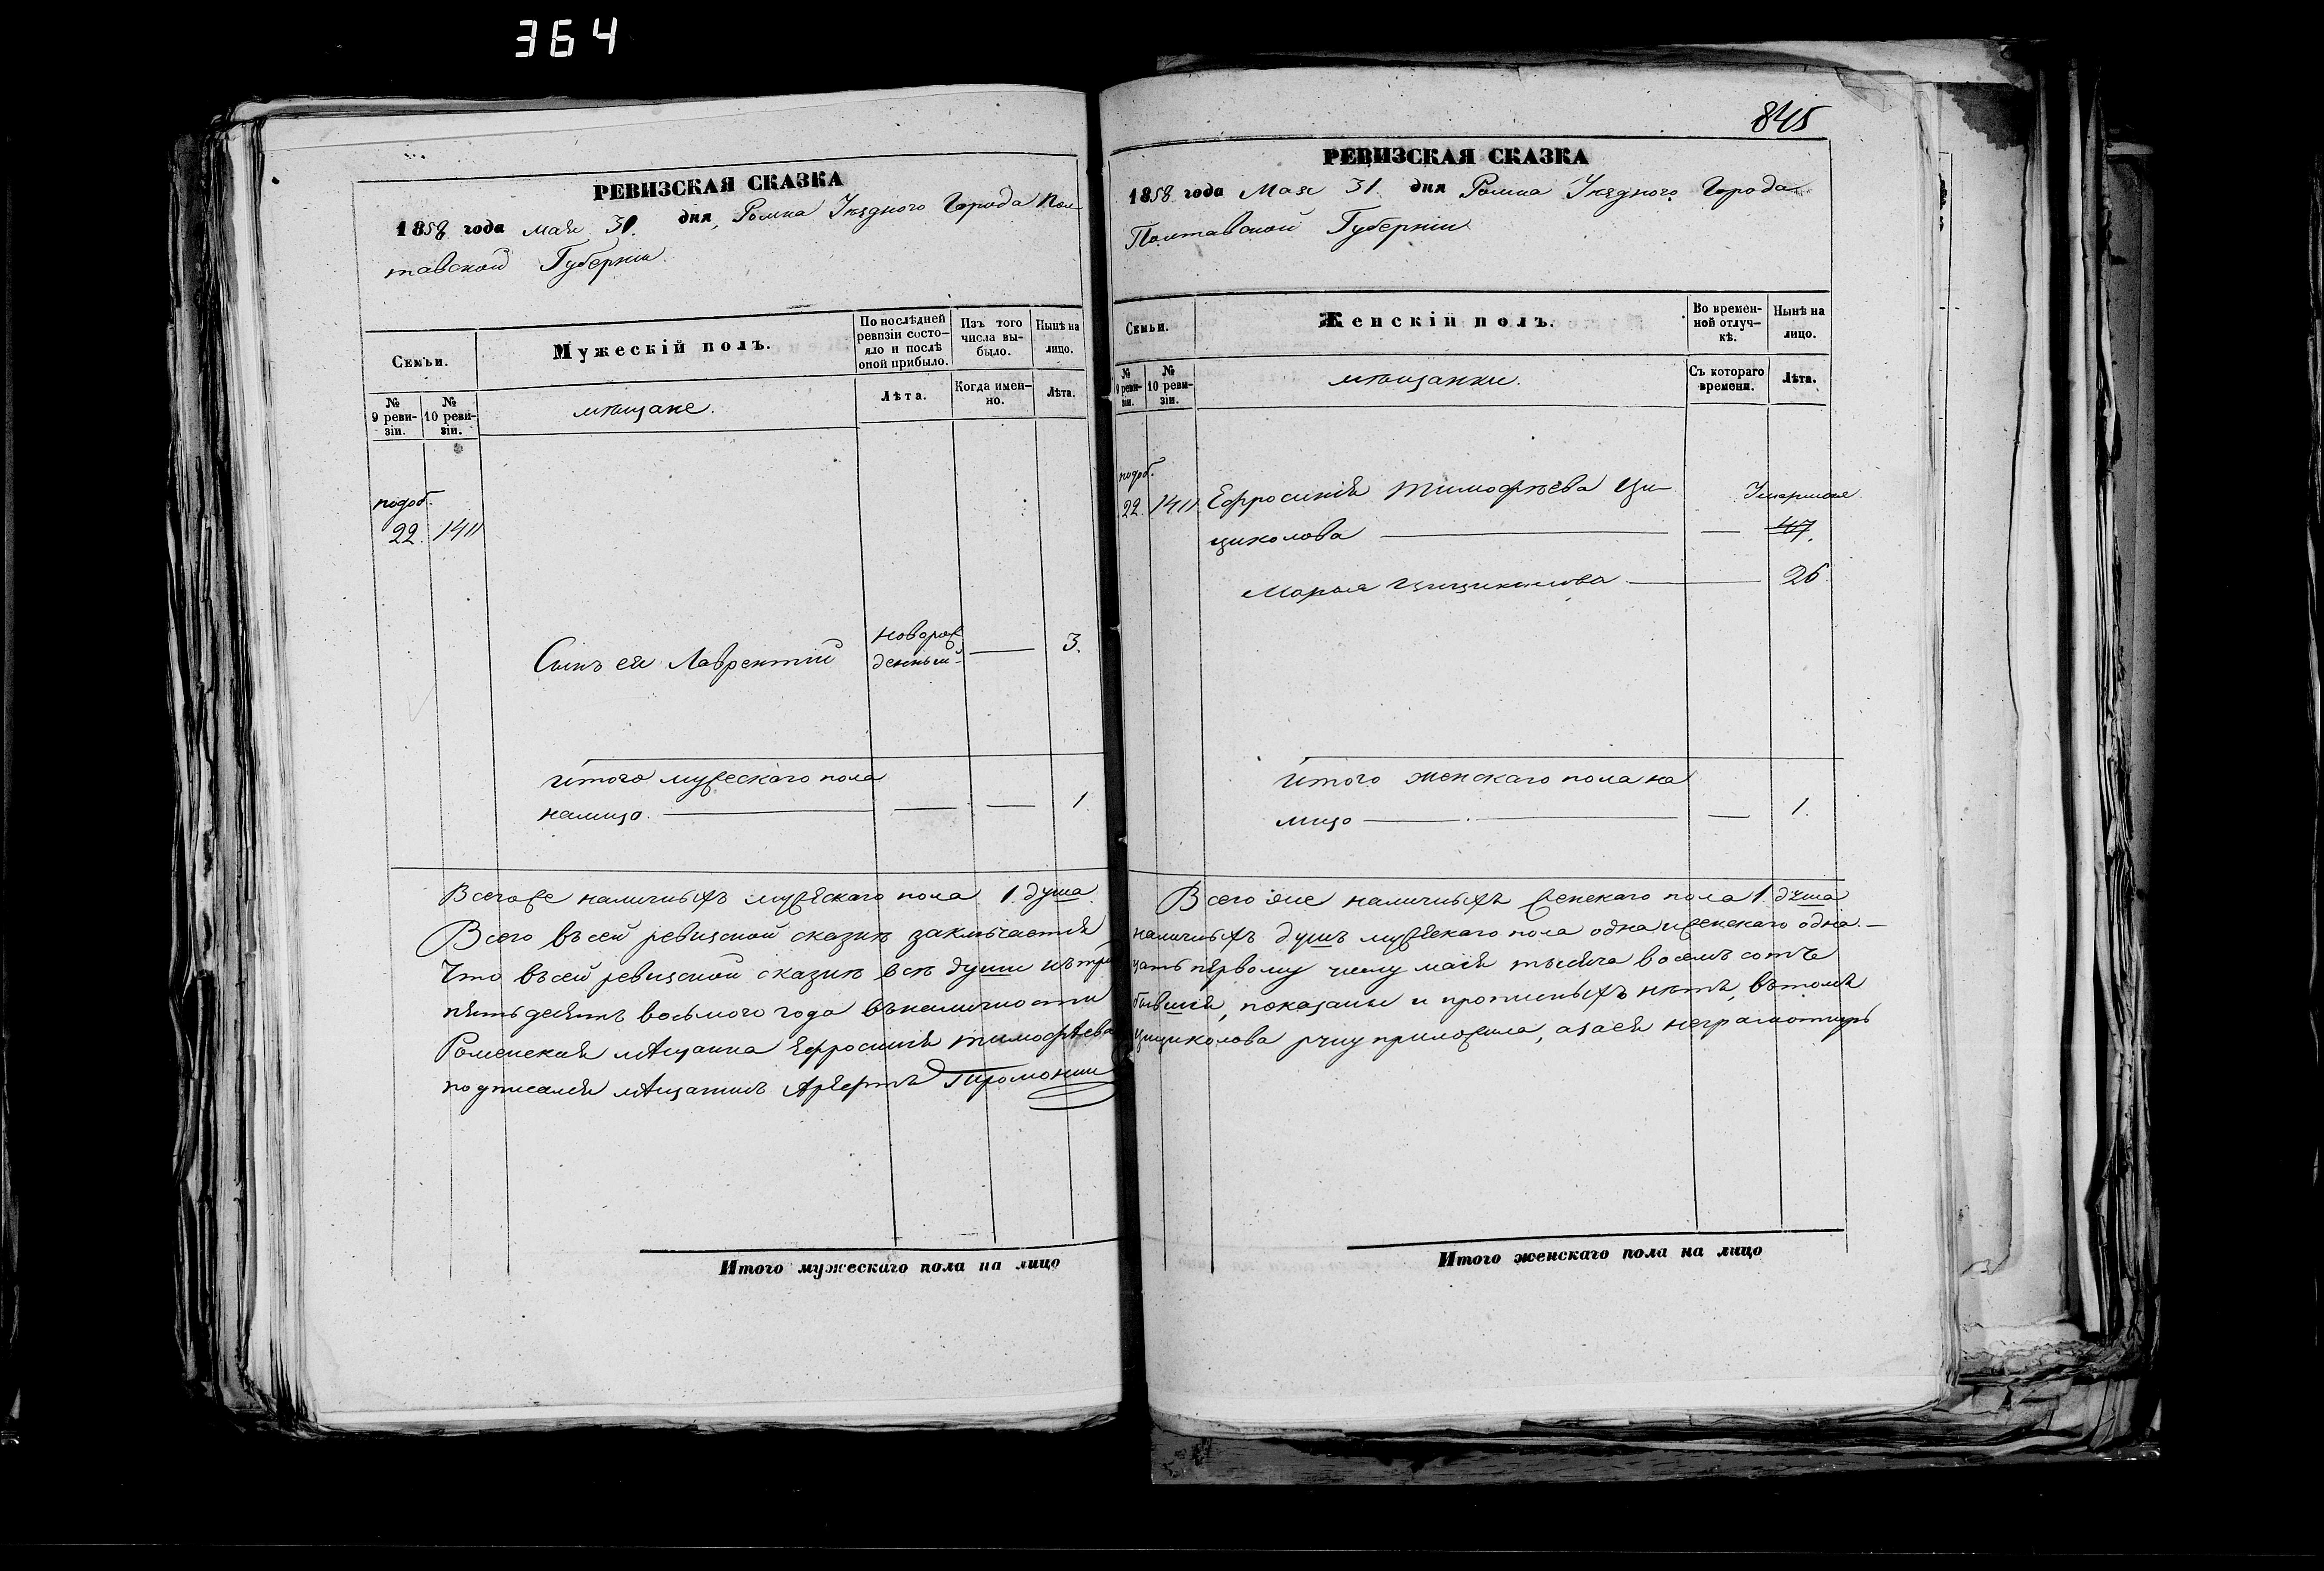 364
РЕВИЗСКАЯ СКАЗКА
1858 года мая 31. дня, Ромна Уѣзднаго Города Пол
тавской Губерніи.
Семьи.
Мужескій полъ.
По послѣдней
ревизіи состо-
яло и послѣ
оной прибыло.
Изъ того
числа вы-
было.
Нынѣ на
лицо.
№
9 реви-
зіи.
№
10 реви-
зіи.
мѣщане.
Лѣта.
Когда имен-
но.
Лѣта.
подоб.
22. 1411
Сынъ ея Лаврентій
новорож
денный
— 3.
Итого мужескаго пола
налицо. — — — 1
Всегоже наличныхъ мужескаго пола 1. душа.
Всего въсей ревизской сказкѣ заключается
Что въсей ревизской сказкѣ всѣ души къ три
пятьдесятъ восьмого года въналичности
Роменская мѣщанка Ефросинія тимофѣева
подписался мѣщанинъ
Итого мужескаго пола на лицо
845
РЕВИЗСКАЯ СКАЗКА
1858 года Мая 31. дня Ромна Уѣзднаго Города
Полтавской Губерніи
Семьи.
Женскій полъ.
Во времен-
ной отлуч-
кѣ.
Нынѣ на
лицо.
№
9 реви-
зіи.
№
10 реви-
зіи.
мѣщанки.
Съ котораго
времени.
Лѣта.
подоб.
22. 1411 Ефросинія Тимофѣева Ци-
циколова — —
47.
Марья — 26.
Итого женскаго пола на
лицо — — 1.
Всего же наличныхъ женскаго пола 1. душа
наличныхъ душъ мужескаго пола одна иженскаго одна. —
цать первому числу маія тысяча восемъ сотъ
бывшія, показаны и прописныхъ нѣтъ, вътомъ
Цициколова руку приложила, азаея
Итого женскаго пола на лицо